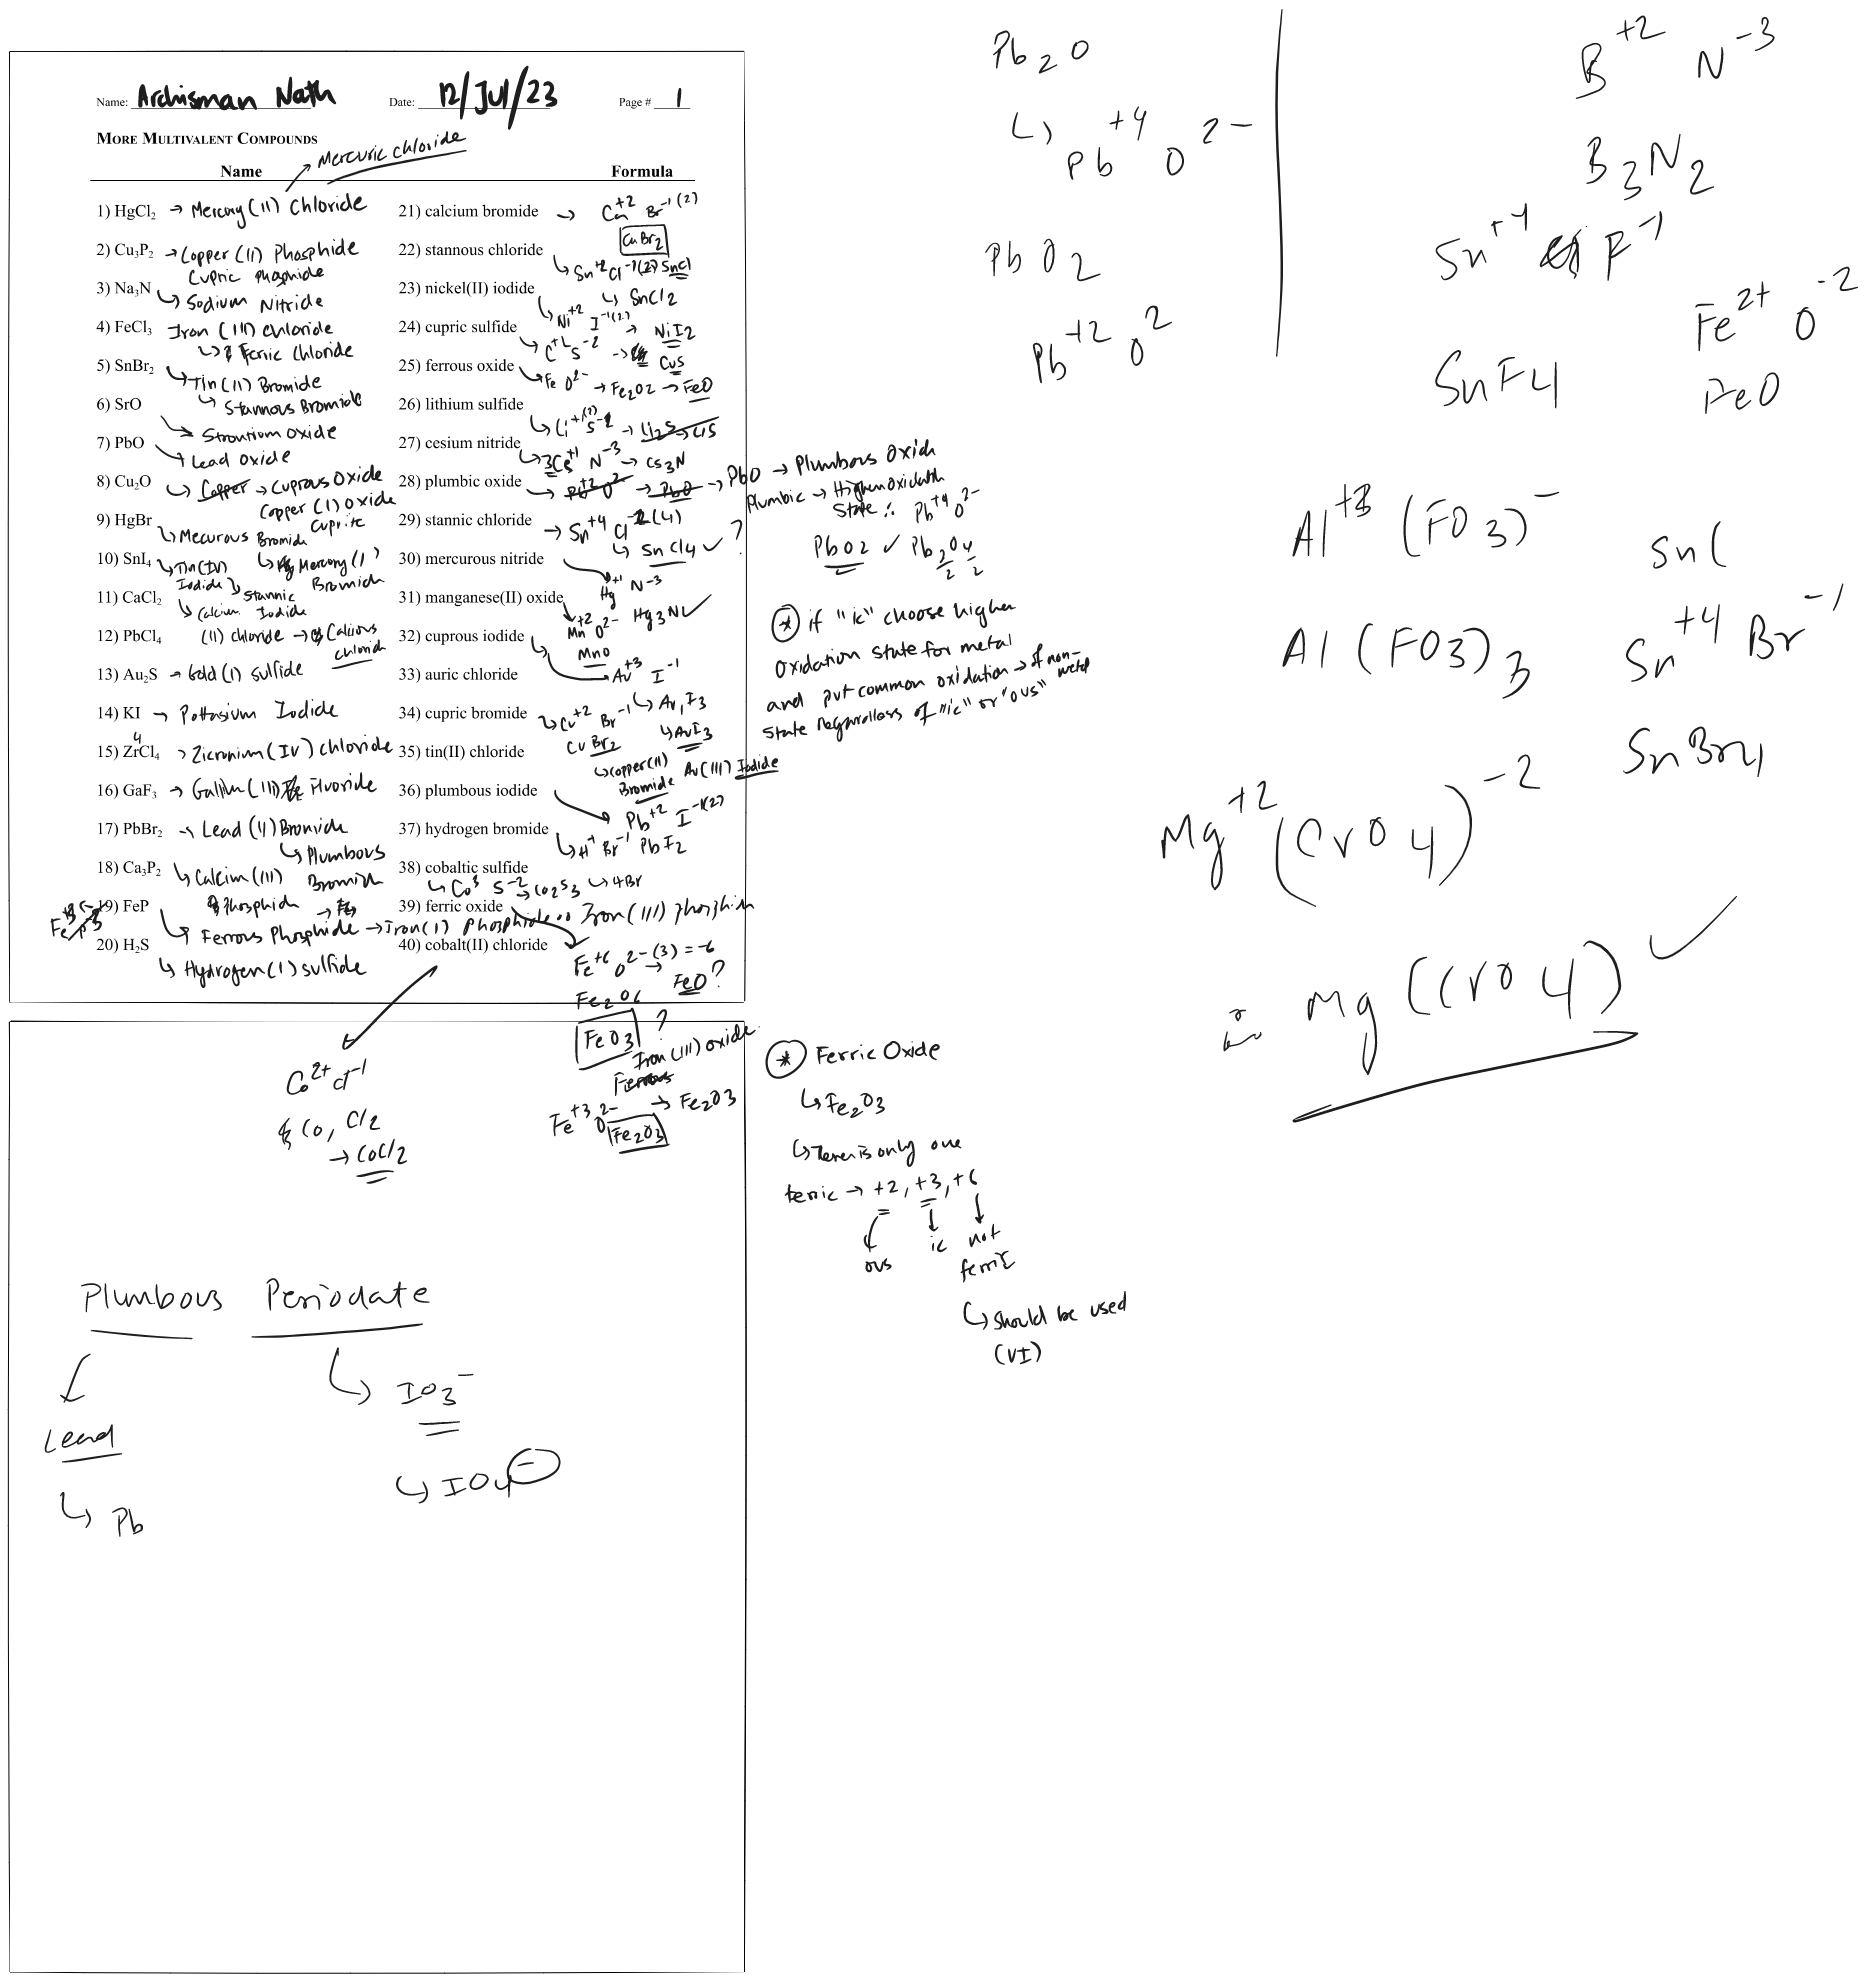 Name: Archisman Nath Date: 12/Jul/23 Page # 1
MORE MULTIVALENT COMPOUNDS
→ Mercuric chloride
Name Formula
1) HgCl₂ → Mercury (II) Chloride
2) Cu₃P₂ → Copper (II) Phosphide
Cupric Phosphide
3) Na₃N ↳ Sodium Nitride
4) FeCl₃ Iron (III) chloride
↳ Ferric Chloride
5) SnBr₂ ↳ Tin (II) Bromide
↳ Stannous Bromide
6) SrO ↘ Strontium oxide
7) PbO ↘ Lead Oxide
8) Cu₂O ↳ Copper → Cuprous Oxide
Copper (I) Oxide
Cuprite
9) HgBr ↳ Mecurous Bromide
↳ Mercury (I)
Bromide
10) SnI₄ ↳ Tin (IV)
Iodide ↳ Stannic
Iodide
11) CaCl₂ ↳ Calcium
(II) chloride → Calcious
chloride
12) PbCl₄
13) Au₂S → Gold (I) sulfide
14) KI → Pottasium Iodide
15) ZrCl₄ → Zicronium (IV) chloride
4
16) GaF₃ → Gallium (III) Fluoride
17) PbBr₂ → Lead (II) Bromide
↳ Plumbous
Bromide
18) Ca₃P₂ ↳ Calcium (III)
Phosphide
19) FeP ↳ Ferrous Phosphide → Iron (I) Phosphide Iron (III) phosphide
20) H₂S
↳ Hydrogen (I) sulfide
21) calcium bromide → Ca⁺² Br⁻¹ (2)
CaBr₂
22) stannous chloride
↳ Sn⁺² Cl⁻¹ (2) SnCl
↳ SnCl₂
23) nickel(II) iodide
↳ Ni⁺² I⁻¹ (2)
→ NiI₂
24) cupric sulfide
↳ C⁺² S⁻² → CuS
25) ferrous oxide ↳ Fe O²⁻ → Fe₂O₂ → FeO
26) lithium sulfide
↳ Li⁺ (2) S⁻² → Li₂S → LiS
27) cesium nitride
↳ 3Cs⁺¹ N⁻³ → Cs₃N
28) plumbic oxide → Pb⁺² O² → PbO → PbO → Plumbous Oxid
29) stannic chloride → Sn⁺⁴ Cl (4)
↳ SnCl₄ ✓ ?
30) mercurous nitride
Hg⁺¹ N⁻³
Hg₃N ✓
31) manganese(II) oxide
Mn⁺² O²⁻
MnO
32) cuprous iodide
Au⁺³ I⁻¹
33) auric chloride
↳ Au, I₃
↳ AuI₃
Au (III) Iodide
34) cupric bromide ↳ Cu⁺² Br⁻¹
CuBr₂
↳ copper (II)
Bromide
35) tin(II) chloride
36) plumbous iodide
Pb⁺² I⁻¹ (2)
PbI₂
37) hydrogen bromide
↳ H⁺ Br⁻¹
↳ HBr
38) cobaltic sulfide
↳ Co³ S⁻² → Co₂S₃
39) ferric oxide
40) cobalt(II) chloride
Fe⁺⁶ O²⁻ (3) = -6
→ FeO ?
Fe₂O₆
FeO₃ ?
Iron (III) oxide
Ferrous
Fe⁺³ O²⁻ → Fe₂O₃
Fe₂O₃
Co²⁺ Cl⁻¹
Co, Cl₂
→ CoCl₂
Plumbic → Higher oxidatn
state ∴ Pb⁺⁴ O²⁻
PbO₂ ✓ Pb₂O₄
2 2
* if "ic" choose higher
oxidation state for metal
and put common oxidation → of non-metal
state regardless of "ic" or "ous"
* Ferric Oxide
↳ Fe₂O₃
↳ There is only one
ferric → +2, +3, +6
ous ic not
ferric
↳ should be used
(VI)
Plumbous Periodate
Lead
↳ Pb
↳ IO₃⁻
↳ IO₄⁻
Pb₂O
↳ Pb⁺⁴ O²⁻
PbO₂
Pb⁺² O²
B⁺² N⁻³
B₃N₂
Sn⁺⁴ F⁻¹
SnF₄
Fe²⁺ O⁻²
FeO
Al⁺³ (FO₃)⁻
Al(FO₃)₃
Sn(
Sn⁺⁴ Br⁻¹
SnBr₄
Mg⁺² (CrO₄)⁻²
∴ Mg(CrO₄) ✓